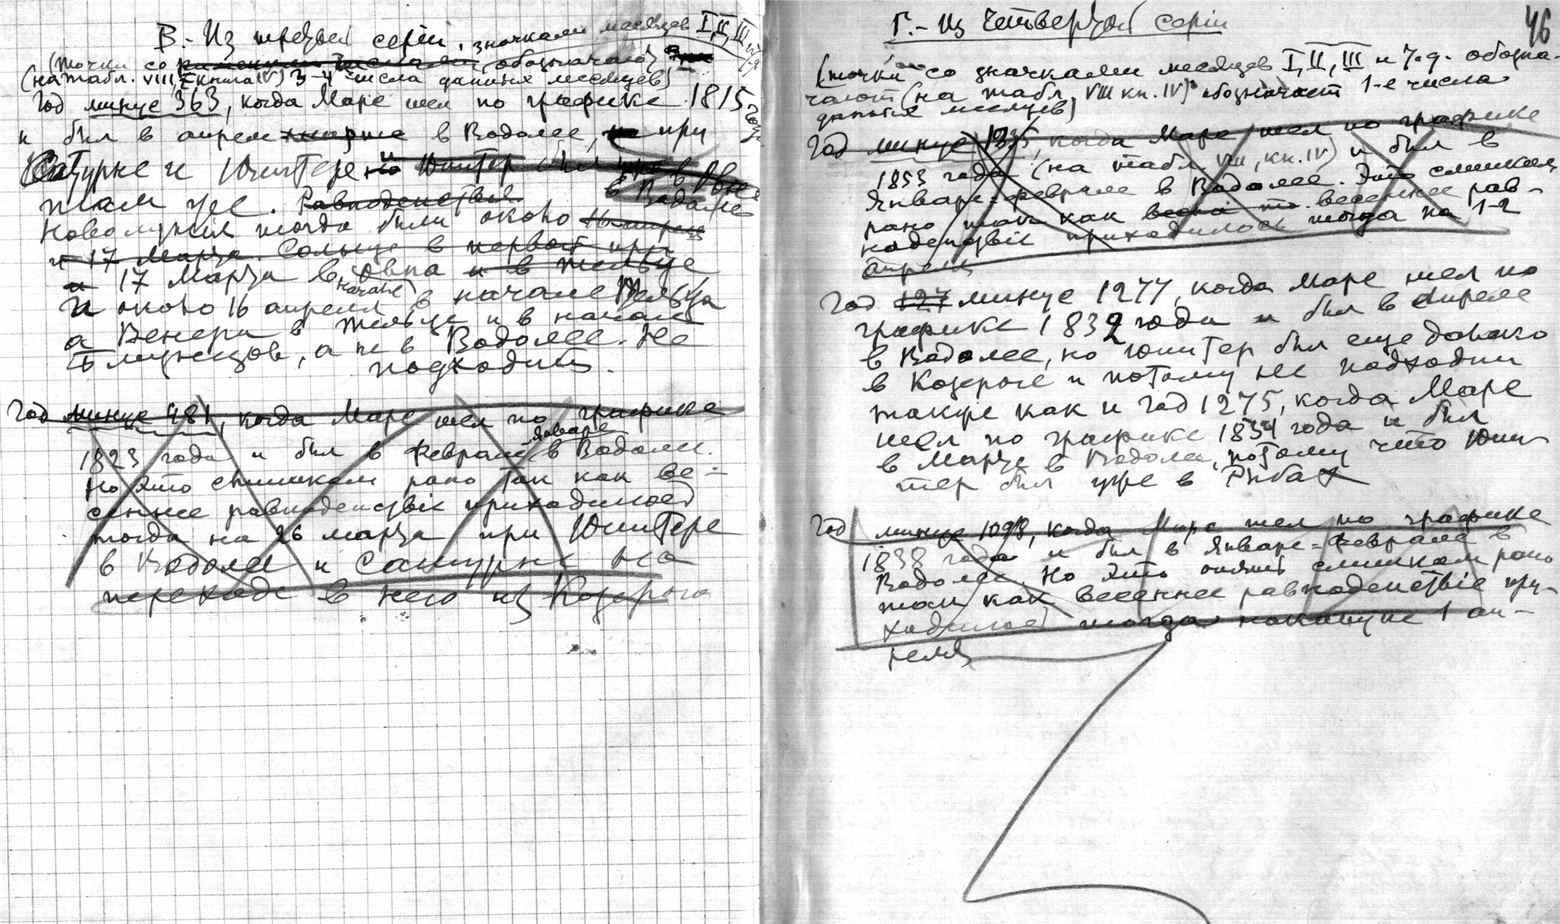 В.- Из третьей серии, значками месяцев I, II, III
(точки со обозначают
(на табл. VIII книга IV) 3-4 числа данных месяцев)
Год минус 363, когда Марс шел по графике 1815 года
и был в апреле в Водолее, при
Сатурне и Юпитере
там же. Равноденствия в Водолее
Новолуния тогда были около
и 17 Марта. Солнце в первой при
17 Марта в начале Овна и в Тельце
и около 16 апреля в начале Тельца
а Венера в Тельце и в начале
Близнецов, а не в Водолее. Не
подходит.
Год минус 481, когда Марс шел по графике
1823 года и был в Январе - Феврале в Водолее.
Но это слишком рано так как ве-
сеннее равноденствие приходилось
тогда на 26 марта при Юпитере
в Водолее и Сатурне на
переходе в него из Козерога
46
Г.- Из Четвертой серии
(точки со значками месяцев I, II, III и т.д. обозна-
чают (на табл. VIII кн. IV) обозначают 1-е числа
данных месяцев)
Год минус 1335, когда Марс шел по графике
1853 года (на табл. VIII, кн. IV) и был в
Январе-феврале в Водолее. Это слишком
рано так как весеннее рав-
ноденствие приходилось тогда на 1-2
апреля
Год 127 минус 1277, когда Марс шел по
графике 1832 года и был в Апреле
в Водолее, но Юпитер был еще далеко
в Козероге и потому не подходит
также как и год 1275, когда Марс
шел по графике 1834 года и был
в Марте в Водолее, потому что Юпи-
тер был уже в Рыбах
Год минус 1098, когда Марс шел по графике
1838 года и был в Январе-Феврале в
Водолее. Но это опять слишком рано
так как весеннее равноденствие при-
ходилось тогда накануне 1 ап-
реля